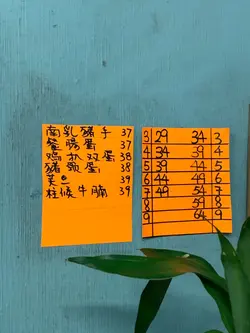 南乳豬手 37
腸蛋 37
鸡扒双蛋 38
豬頸蛋 38
39
柱候牛腩 39
3 29 34 3
4 34 39 4
5 39 44 5
6 44 49 6
7 49 54 7
8 59 8
9 64 9